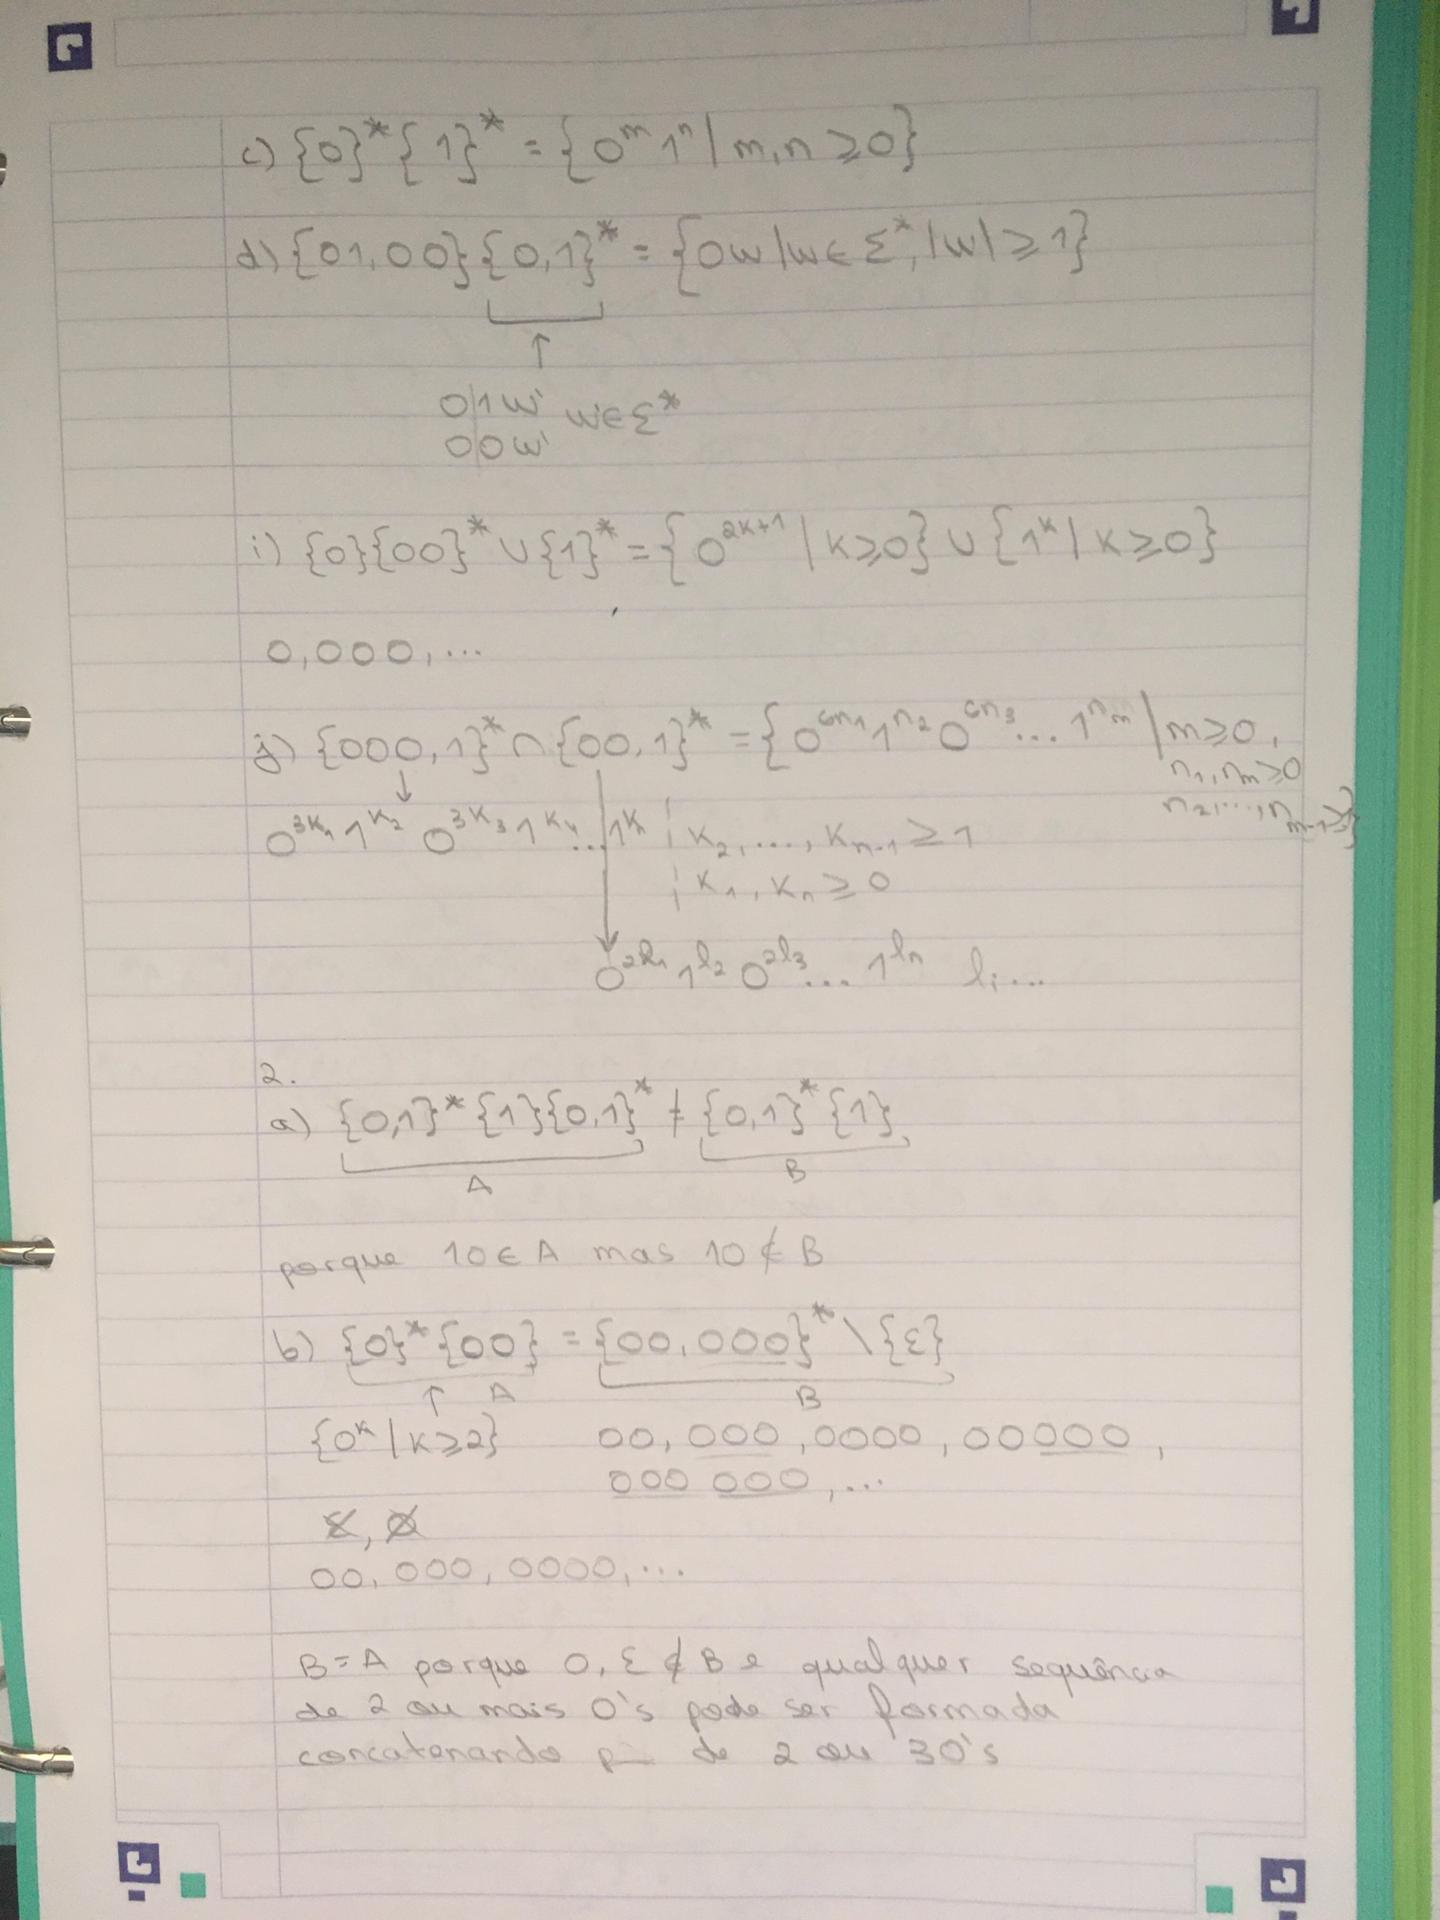 c) {0}*{1}* = {0ᵐ1ⁿ | m,n ≥ 0}
d) {01,00}{0,1}* = {0w | w ∈ Σ*, |w| ≥ 1}
↑
0|1w' w∈Σ*
0|0w'
i) {0}{00}* ∪ {1}* = {0²ᵏ⁺¹ | k ≥ 0} ∪ {1ᵏ | k ≥ 0}
0,000,...
j) {000,1}* ∩ {00,1}* = {0^{6n₁} 1^{n₂} 0^{6n₃} ... 1^{n_m} | m ≥ 0,
n₁, n_m ≥ 0
n₂, ..., n_{m-1} ≥ }
0^{3k₁} 1^{k₂} 0^{3k₃} 1^{k₄} ... 1^{kₙ} | k₂, ..., k_{n-1} ≥ 1
| k₁, kₙ ≥ 0
0^{2l₁} 1^{l₂} 0^{2l₃} ... 1^{lₙ} lᵢ ...
2.
a) {0,1}*{1}{0,1}* ≠ {0,1}*{1}
A B
porque 10 ∈ A mas 10 ∉ B
b) {0}*{00} = {00,000}* \ {ε}
↑ A B
{0ᵏ | k ≥ 2} 00, 000, 0000, 00000,
000 000, ...
ε, 0
00, 000, 0000, ...
B = A porque 0, ε ∉ B e qualquer sequência
de 2 ou mais 0's pode ser formada
concatenando de 2 ou 3 0's